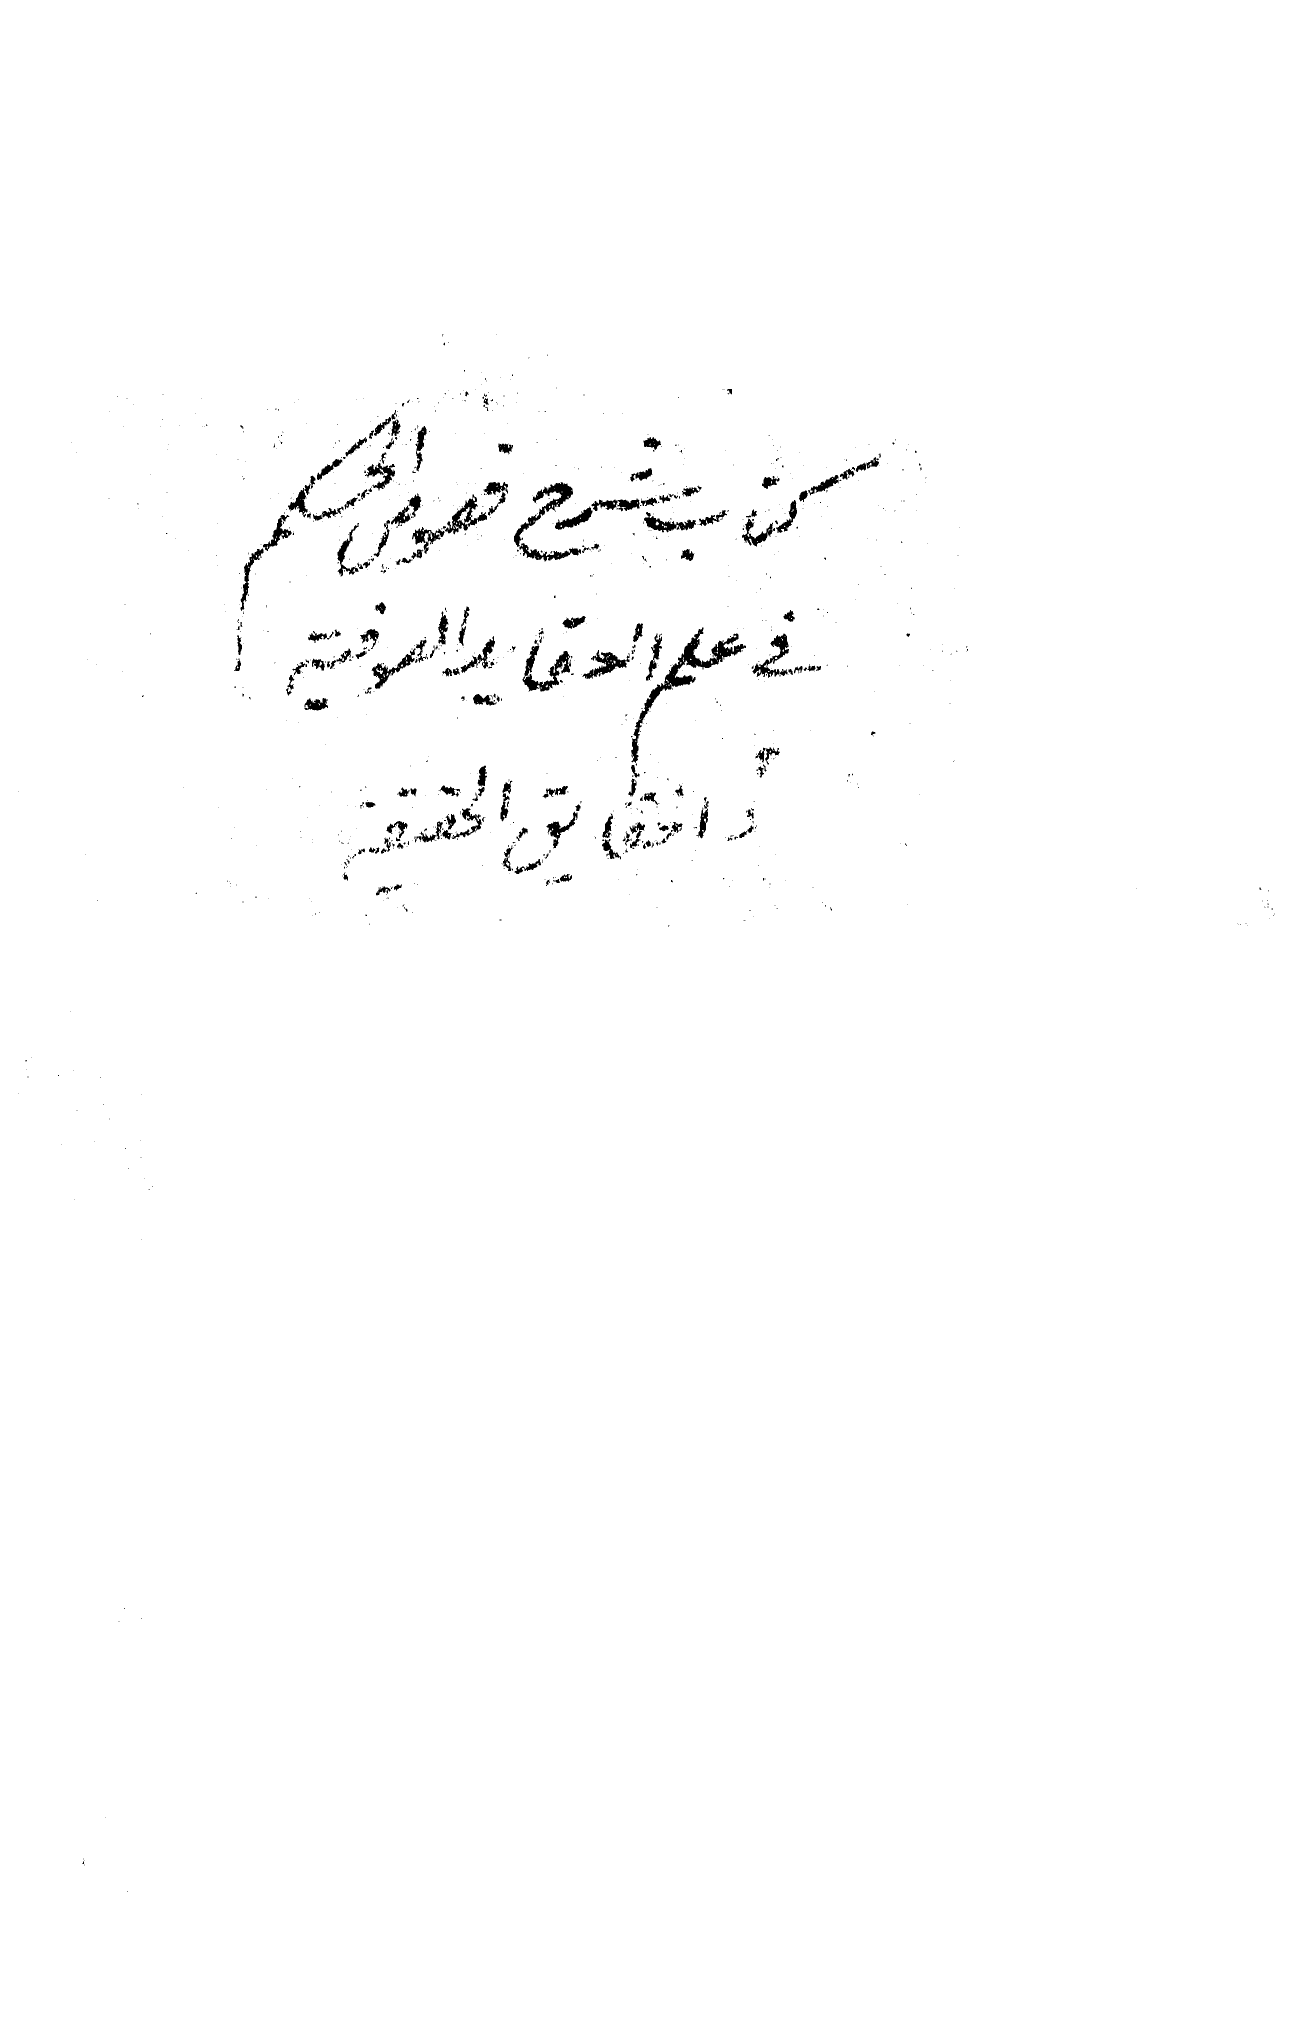 كتاب شرح فصوص الحكم
في علم العقايد الصوفية
و الحقايق الحقيقية